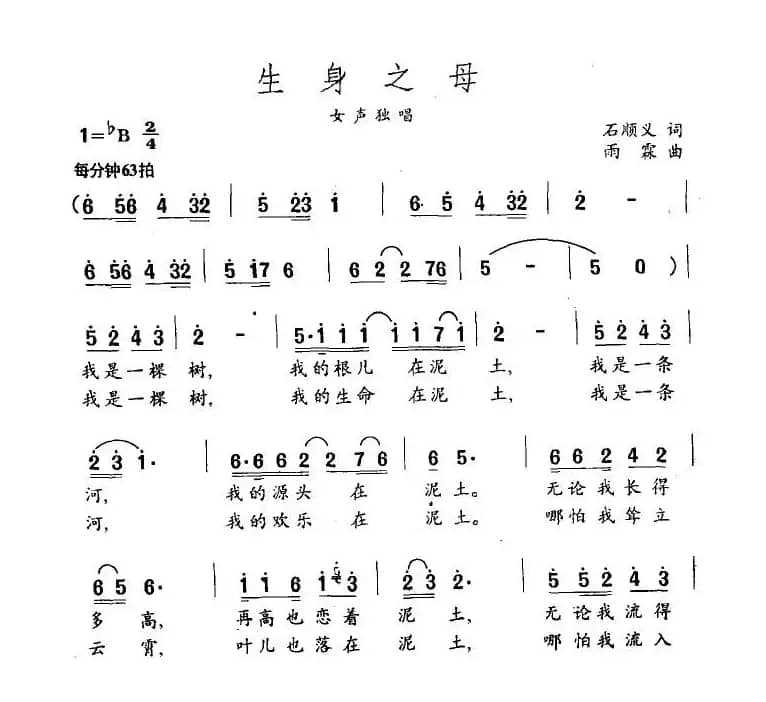 生身之母
女声独唱
1=♭B 2/4
石顺义 词
每分钟63拍
雨霖 曲
(6 56 4 32 | 5 23 1 | 6· 5 4 32 | 2 - |
6 56 4 32 | 5 17 6 | 6 2 2 76 | 5 - | 5 0 )|
5 2 4 3 | 2 - | 5·1 1 1 1 1 7 1 | 2 - | 5 2 4 3 |
我是一棵 树, 我的根儿 在泥 土, 我是一条
我是一棵 树, 我的生命 在泥 土, 我是一条
2 3 1· | 6·6 6 2 2 7 6 | 6 5· | 6 6 2 4 2 |
河, 我的源头 在 泥土。 无论我长得
河, 我的欢乐 在 泥土。 哪怕我耸立
6 5 6· | 1 1 6 1 3 | 2 3 2· | 5 5 2 4 3 |
多高, 再高也恋着 泥土, 无论我流得
云霄, 叶儿也落在 泥土, 哪怕我流入